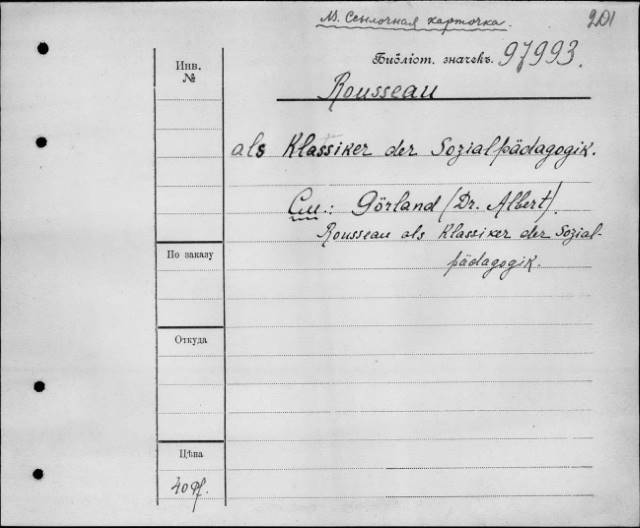 М. Ссылочная карточка.
201
Инв.
№
Библіот. значекъ. 97993.
Rousseau
als Klassiker der Sozialpädagogik.
См.: Görland (Dr. Albert).
Rousseau als Klassiker der Sozial-
pädagogik.
По заказу
Откуда
Цѣна
40 Pf.